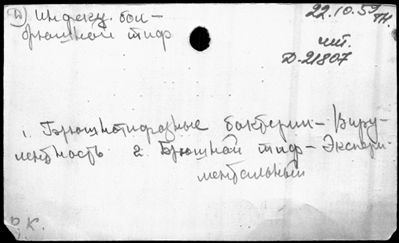 Индекс. боль-
брюшной тиф
22.10.59
шт.
Д-21807
1. Брюшнотифозные бактерии - Виру-
лентность 2. Брюшной тиф - Экспери-
ментальный
Р.К.